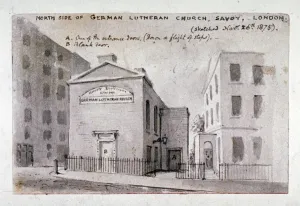 NORTH SIDE OF GERMAN LUTHERAN CHURCH, SAVOY, LONDON
(sketched Nov. 26th 1875).
A. One of the entrance doors, (down a flight of steps).
B. Blank door.
GERMAN LUTHERAN CHURCH